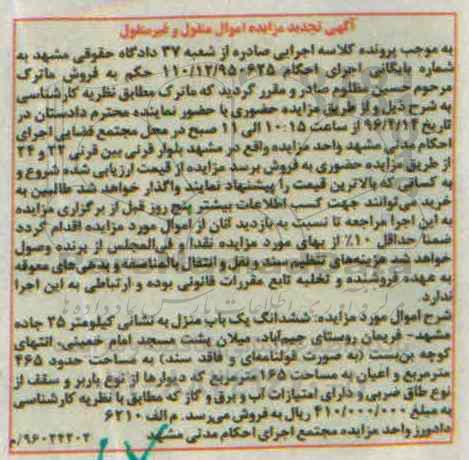 آگهی تجدید مزایده اموال منقول و غیرمنقول
به موجب پرونده کلاسه اجرایی صادره از شعبه ۳۷ دادگاه حقوقی مشهد به
شماره بایگانی اجرای احکام ۱۱۰/۱۲/۹۵۰۶۲۵ حکم به فروش ماترک
مرحوم حسین مظلوم صادر و مقرر گردید که ماترک مطابق نظریه کارشناسی
به شرح ذیل و از طریق مزایده حضوری با حضور نماینده محترم دادستان در
تاریخ ۹۶/۲/۱۴ از ساعت ۱۰:۱۵ الی ۱۱ صبح در محل مجتمع قضایی اجرای
احکام مدنی مشهد واحد مزایده واقع در مشهد بلوار قرنی بین قرنی ۲۲ و ۲۴
از طریق مزایده حضوری به فروش برسد مزایده از قیمت ارزیابی شده شروع و
به کسانی که بالاترین قیمت را پیشنهاد نمایند واگذار خواهد شد طالبین به
خرید می‌توانند جهت کسب اطلاعات بیشتر پنج روز قبل از برگزاری مزایده
به این اجرا مراجعه تا نسبت به بازدید آنان از اموال مورد مزایده اقدام گردد
ضمنا حداقل ۱۰٪ از بهای مورد مزایده نقدا و فی‌المجلس از برنده وصول
خواهد شد هزینه‌های تنظیم سند و نقل و انتقال بالمناصفه و بدهی‌های معوقه
به عهده فروشنده و تخلیه تابع مقررات قانونی بوده و ارتباطی به این اجرا
ندارد.
شرح اموال مورد مزایده: ششدانگ یک باب منزل به نشانی کیلومتر ۲۵ جاده
مشهد- فریمان روستای جیم‌آباد، میلان پشت مسجد امام خمینی، انتهای
کوچه بن‌بست (به صورت قولنامه‌ای و فاقد سند) به مساحت حدود ۴۶۵
مترمربع و اعیان به مساحت ۱۶۵ مترمربع که دیوارها از نوع باربر و سقف از
نوع طاق ضربی و دارای امتیازات آب و برق و گاز که مطابق با نظریه کارشناسی
به مبلغ ۴۱۰/۰۰۰/۰۰۰ ریال به فروش می‌رسد. م الف ۶۲۱۰
دادورز واحد مزایده مجتمع اجرای احکام مدنی مشهد
۹۶۰۲۲۲۰۲/م